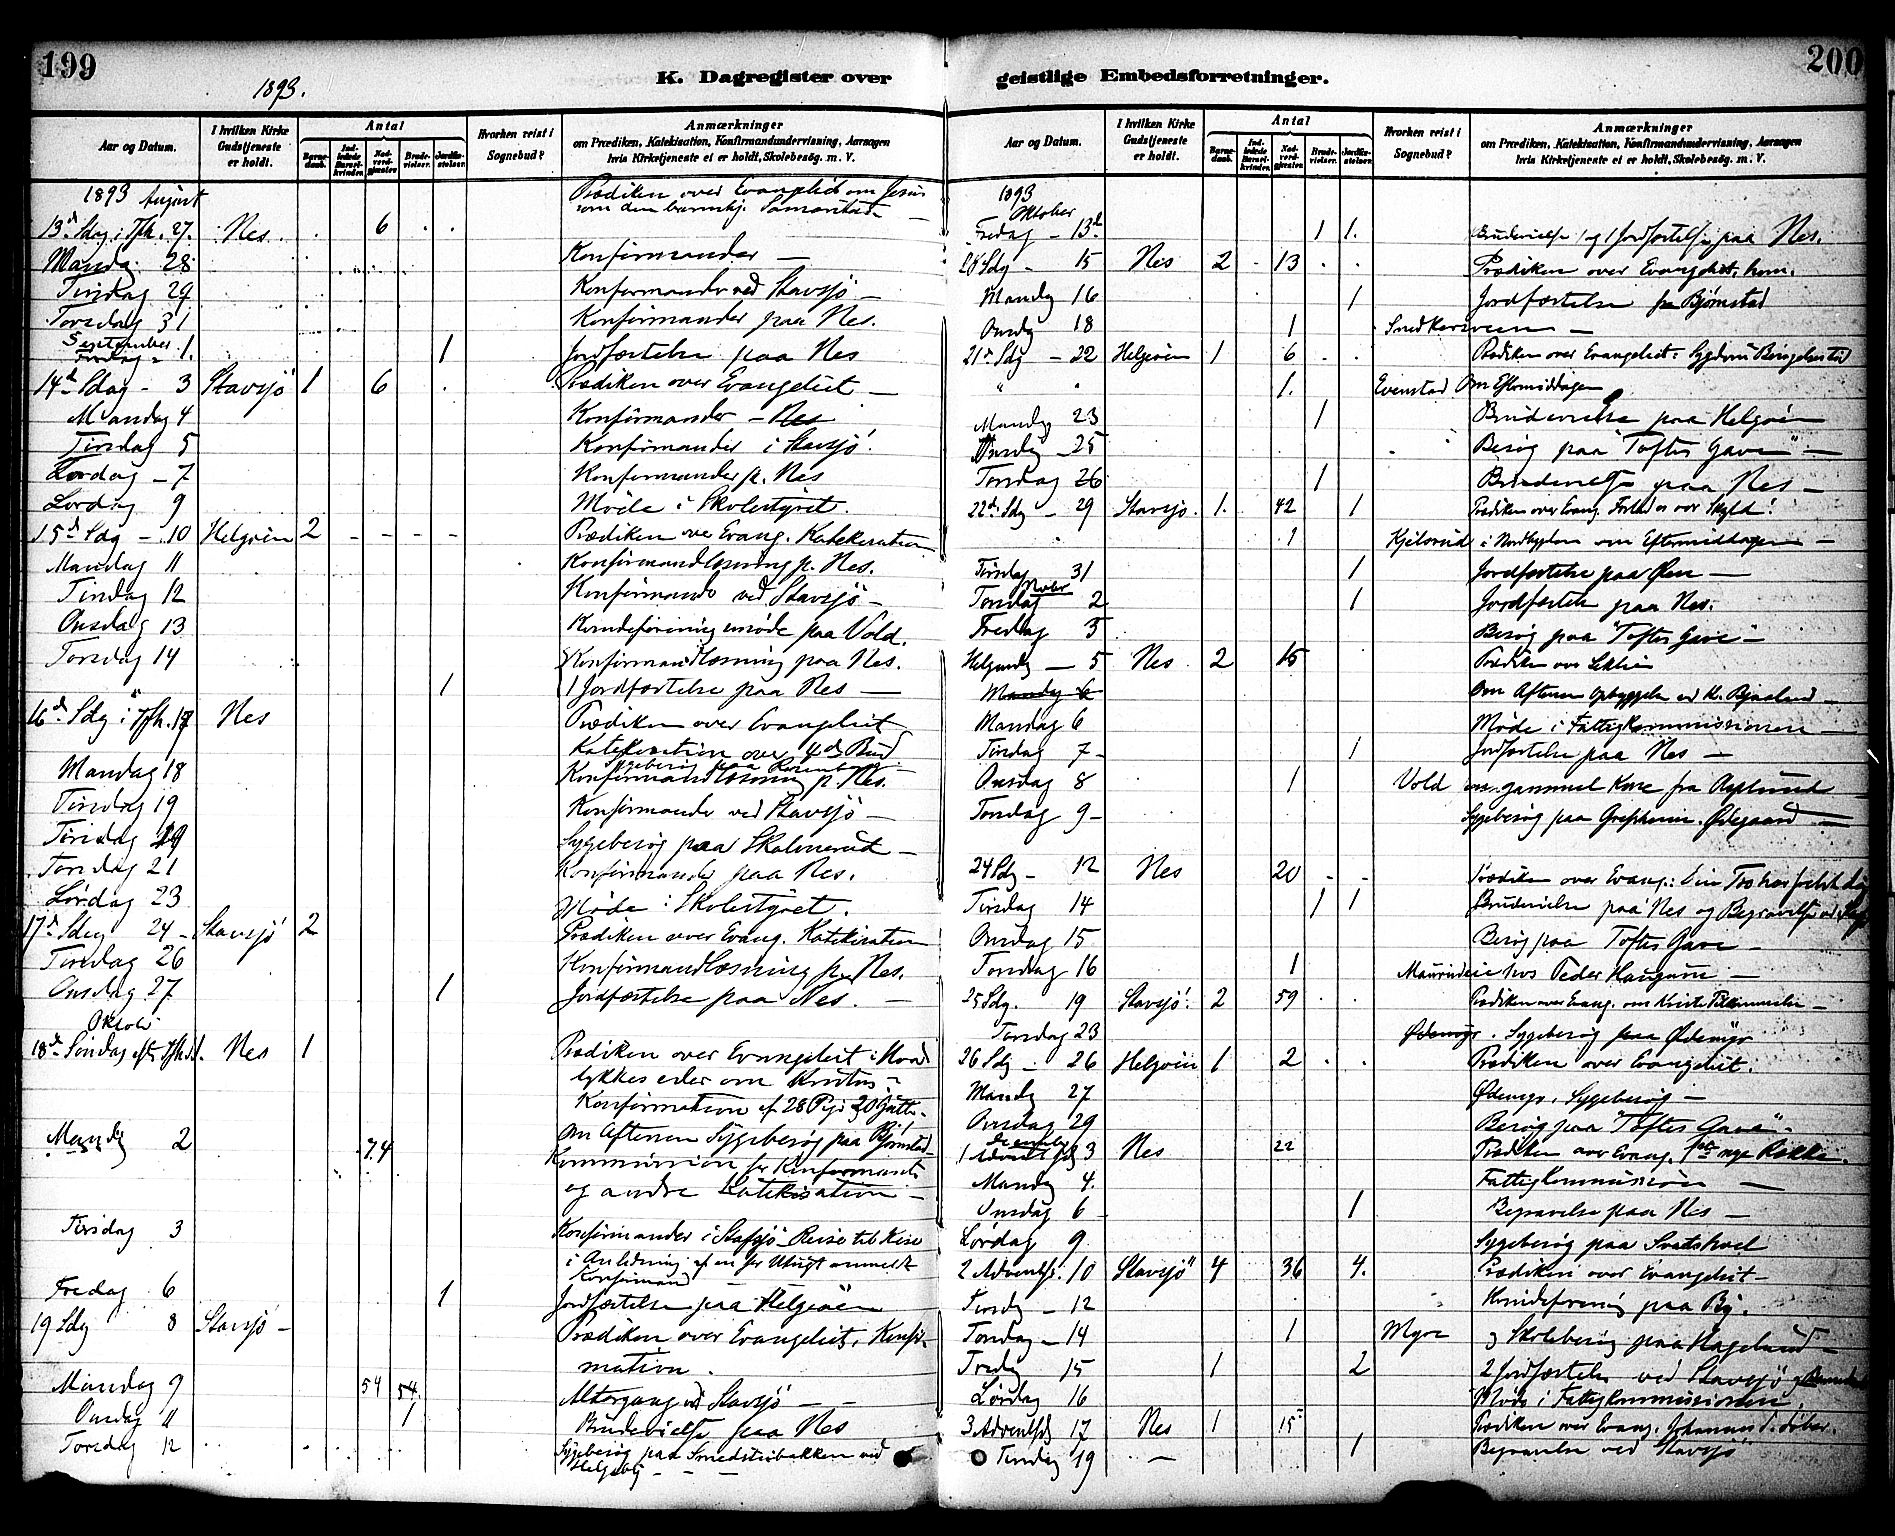 199
1893.
K. Dagregister over
Aar og Datum.
I hvilken Kirke Gudstjeneste er holdt.
Antal
Barnedaab.
Indledede Barselkvinder.
Nadverdgjæster.
Brudevielser.
Jordfæstelser.
Hvorhen reist i Sognebud?
Anmærkninger
om Prædiken, Katekisation, Konfirmandundervisning, Aarsagen
hvis Kirketjeneste ei er holdt, Skolebesøg m. V.
1893 August
Prædiken over Evangeliet om Jesus
som den barmhj. Samaritan
13d Sdag i Tfh. 27. Nes. 6
Mandag 28 Konfirmander —
Tirsdag 29 Konfirmander ved Stavsjö —
Torsdag 31 Konfirmander paa Nes.
September
Fredag 1. 1 Jordfæstelse paa Nes
14d Sdag - 3 Stavsjö 1 6 Prædiken over Evangeliet —
Mandag 4 Konfirmander - Nes
Tirsdag 5 Konfirmander i Stavsjö.
Lørdag - 7 Konfirmander p. Nes
Lørdag 9 Møde i Skolestyret.
15d Sdg - 10 Helgøen 2 - - - - Prædiken over Evang. Katekisation
Mandag 11 Konfirmandlæsning p. Nes.
Tirsdag 12 Konfirmander ved Stavsjö -
Onsdag 13 Kvindeforeningsmøde paa Vold.
Torsdag 14 Konfirmandlæsning paa Nes.
1 1 Jordfæstelse paa Nes —
16d Sdg i Tfh. 17 Nes Prædiken over Evangeliet
Katekisation over 4de Bud
Sygebesøg paa
Mandag 18 Konfirmandlæsning p. Nes.
Tirsdag 19 Konfirmander ved Stavsjö —
Tirsdag 19 Sygebesøg paa Skolmerud —
Torsdag 21 Konfirmander paa Nes.
Lørdag 23 Møde i Skolestyret.
17d Sdag 24 - Stavsjö 2 Prædiken over Evang. Katekisation
Tirsdag 26 Konfirmandlæsning paa Nes.
Onsdag 27 1 Jordfæstelse paa Nes. —
Oktober
18d Søndag eft. Tfh. 1. Nes 1 Prædiken over Evangeliet: Hvad
tykkes eder om Kristus?
Konfirmation af 28 Piger 20 Gutter.
Om Aftenen Sygebesøg paa Bjørnstad
Mandag 2 74 Kommunion for Konfirmanter
og andre Katekisation —
Tirsdag 3 Konfirmander i Stafsjö Reise til Kise
i Anledning af en for Utugt anmeldt
Konfirmand
Fredag 6 1 Jordfæstelse paa Helgøen
19 Sdg 8 Stavsjö - Prædiken over Evangeliet. Konfir-
mation.
Mandag 9 54 54. Altergang ved Stavsjö —
Onsdag 11 1 Brudevielse paa Nes
Torsdag 12 Sygebesøg paa Smedstubakken ved
Helgeby - - -
200
geistlige Embedsforretninger.
Aar og Datum.
I hvilken Kirke Gudstjeneste er holdt.
Antal
Barnedaab.
Indledede Barselkvinder.
Nadverdgjæster.
Brudevielser.
Jordfæstelser.
Hvorhen reist i Sognebud?
Anmærkninger
om Prædiken, Katekisation, Konfirmandundervisning, Aarsagen
hvis Kirketjeneste ei er holdt, Skolebesøg m. V.
1893
Oktober
Fredag - 13d 1 1. Brudevielse og 1 Jordfæstelse paa Nes.
20 Sdg - 15 Nes 2 13 Prædiken over Evangeliet.
Mandag 16 1 Jordfæstelse Bjørnstad
Onsdg 18 1 Snedkersveen —
21d Sdg - 22 Helgøen 1 6 Prædiken over Evangeliet:
1. Evenstad Om Eftermiddagen
Mandag 23 1 Brudevielse paa Helgøen
Onsdag 25 Besøg paa "Toftes Gave" —
Torsdag 26 1 Brudevielse paa Nes —
22d Sdg - 29 Stavsjö. 1. 42 1 Prædiken over Evang. Forlad os vor Skyld!
1 i Nordbygden om Eftermiddagen —
Tirsdag 31 1 Jordfæstelse paa Øen —
Novbr
Torsdag 2 1 Jordfæstelse paa Nes.
Fredag 3 Besøg paa "Toftes Gave" —
Helgensdg - 5 Nes 2 15 Prædiken over Lektien
Mandag 6 Om Aftenen Opbyggelse
Mandag 6 Møde i Fattigkommissionen —
Tirsdag 7 - 1 Jordfæstelse paa Nes —
Onsdag 8 1 Vold en gammel Kone fra
Torsdag 9 - Sygebesøg paa Grefsheim. Ødegaard —
24 Sdg - 12 Nes 20 - - Prædiken over Evang.: Din Tro har frelst dig
Tirsdag 14 1 1 Brudevielse paa Nes og Begravelse ved
Onsdag 15 Besøg paa Toftes Gave —
Torsdag 16 1 hos Peder Haugsveen —
25 Sdg. 19 Stavsjö. 2 59 Prædiken over Evang. om
Torsdag 23 Ødemyr. Sygebesøg paa Ødemyr
26 Sdg - 26 Helgøen 1 2 Prædiken over Evangeliet.
Mandg 27 Ødemyr, Sygebesøg —
Onsdag 29 Besøg paa "Toftes Gave".
December
1 Adventsdg 3 Nes 22 Prædiken over Evang. fra nye Række.
Mandg 4. Fattigkommission —
Onsdag 6 - 1 Begravelse paa Nes —
Lørdag 9 Sygebesøg paa
2 Adventsd. 10 Stavsjö 4 36 4. Prædiken over Evangeliet —
Tirsdg - 12 Kvindeforening paa By.
Torsdag - 14 1 Myre og Skolebesøg paa Hageland —
Fredag 15 1 2 2 Jordfæstelser ved Stavsjö
Lørdag 16 Møde i Fattigkommissionen
3 Adventsdg 17 Nes 1 15 Prædiken over Evang. Johannes d. Døber.
Tirsdag 19 — 1 Begravelse ved Stavsjö